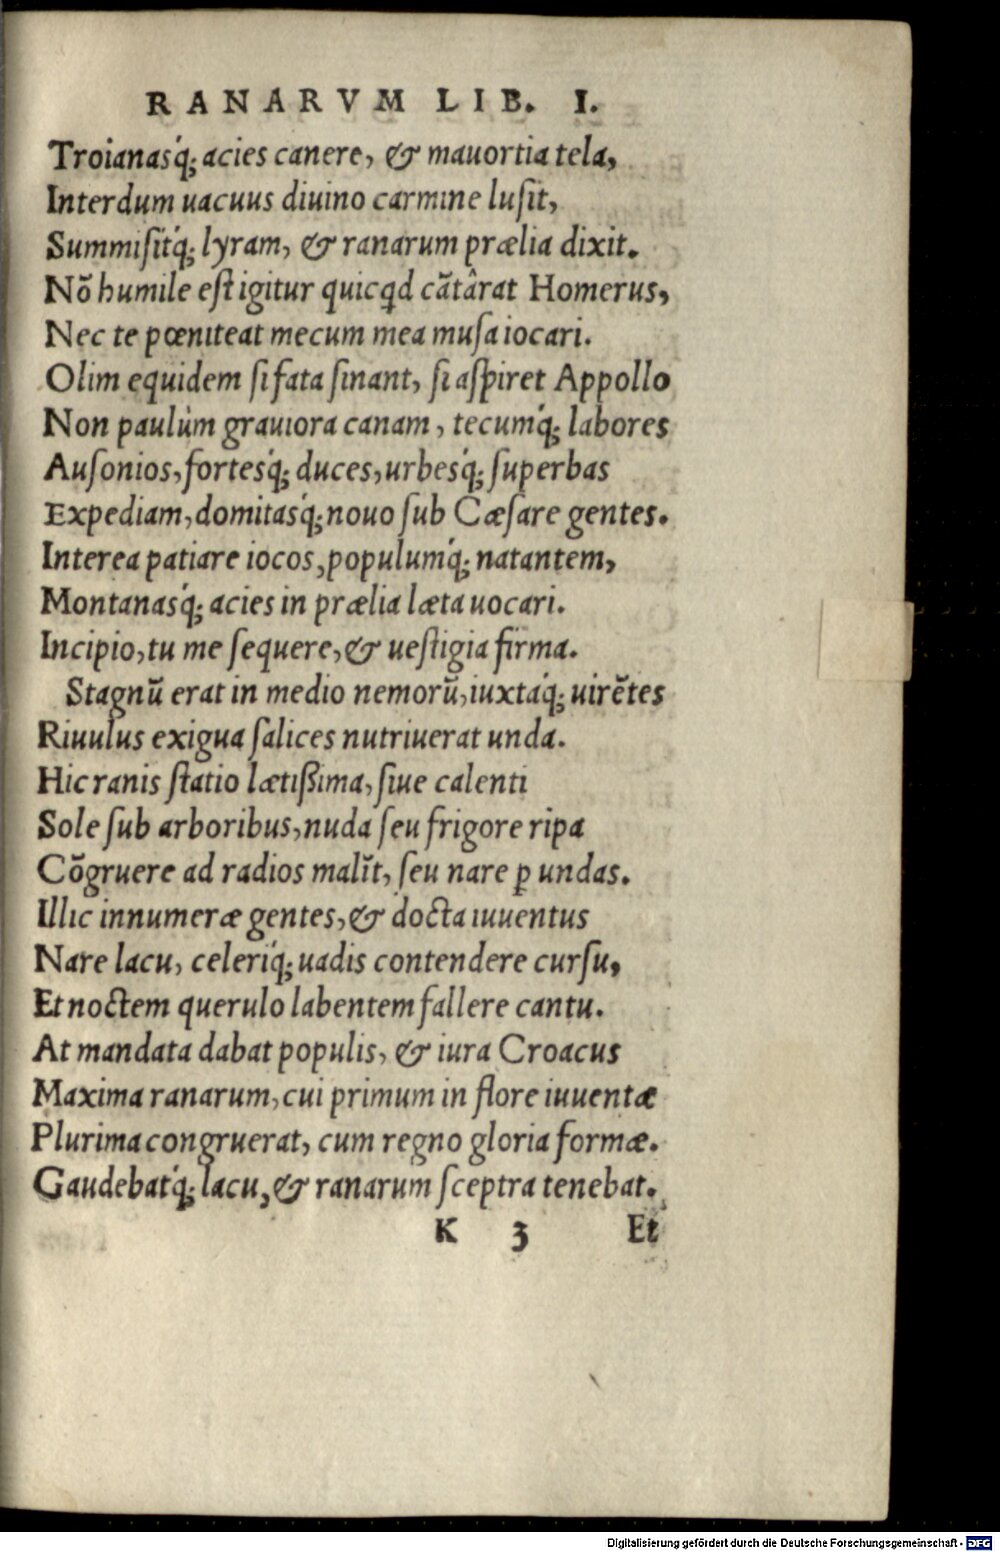 RANARVM LIB. I.
Troianasq́; acies canere, & mauortia tela,
Interdum uacuus diuino carmine luſit,
Summiſitq́; lyram, & ranarum prælia dixit.
Nõ humile eſt igitur quicqd cãtârat Homerus,
Nec te pœniteat mecum mea muſa iocari.
Olim equidem ſi fata ſinant, ſi aſpiret Appollo
Non paulùm grauiora canam, tecumq́; labores
Auſonios, fortesq́; duces, urbesq́; ſuperbas
Expediam, domitasq́; nouo ſub Cæſare gentes.
Interea patiare iocos, populumq́; natantem,
Montanasq́; acies in prælia læta uocari.
Incipio, tu me ſequere, & ueſtigia firma.
Stagnũ erat in medio nemorũ, iuxtaq́; uirẽtes
Riuulus exigua ſalices nutriuerat unda.
Hic ranis ſtatio lætißima, ſiue calenti
Sole ſub arboribus, nuda ſeu frigore ripa
Cõgruere ad radios malĩt, ſeu nare ꝑ undas.
Illic innumeræ gentes, & docta iuuentus
Nare lacu, celeriq́; uadis contendere curſu,
Et noctem querulo labentem fallere cantu.
At mandata dabat populis, & iura Croacus
Maxima ranarum, cui primum in flore iuuentæ
Plurima congruerat, cum regno gloria formæ.
Gaudebatq́; lacu, & ranarum ſceptra tenebat.
K 3 Et
Digitalisierung gefördert durch die Deutsche Forschungsgemeinschaft - DFG